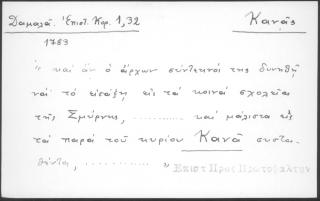 Δαμαλᾶ. Ἐπιστ. Κορ. 1,32 Κανᾶς
1783
" καί ἄν ὁ ἄρχων σύντεκνός της δυνηθῇ
νά τό εἰσάξῃ εἰς τά κοινά σχολεῖα
τῆς Σμύρνης, ............ καί μάλιστα εἰς
τά παρά τοῦ κυρίου Κανᾶ συστα-
θέντα, .............. "
Επιστ Προς Πρωτοψάλτην